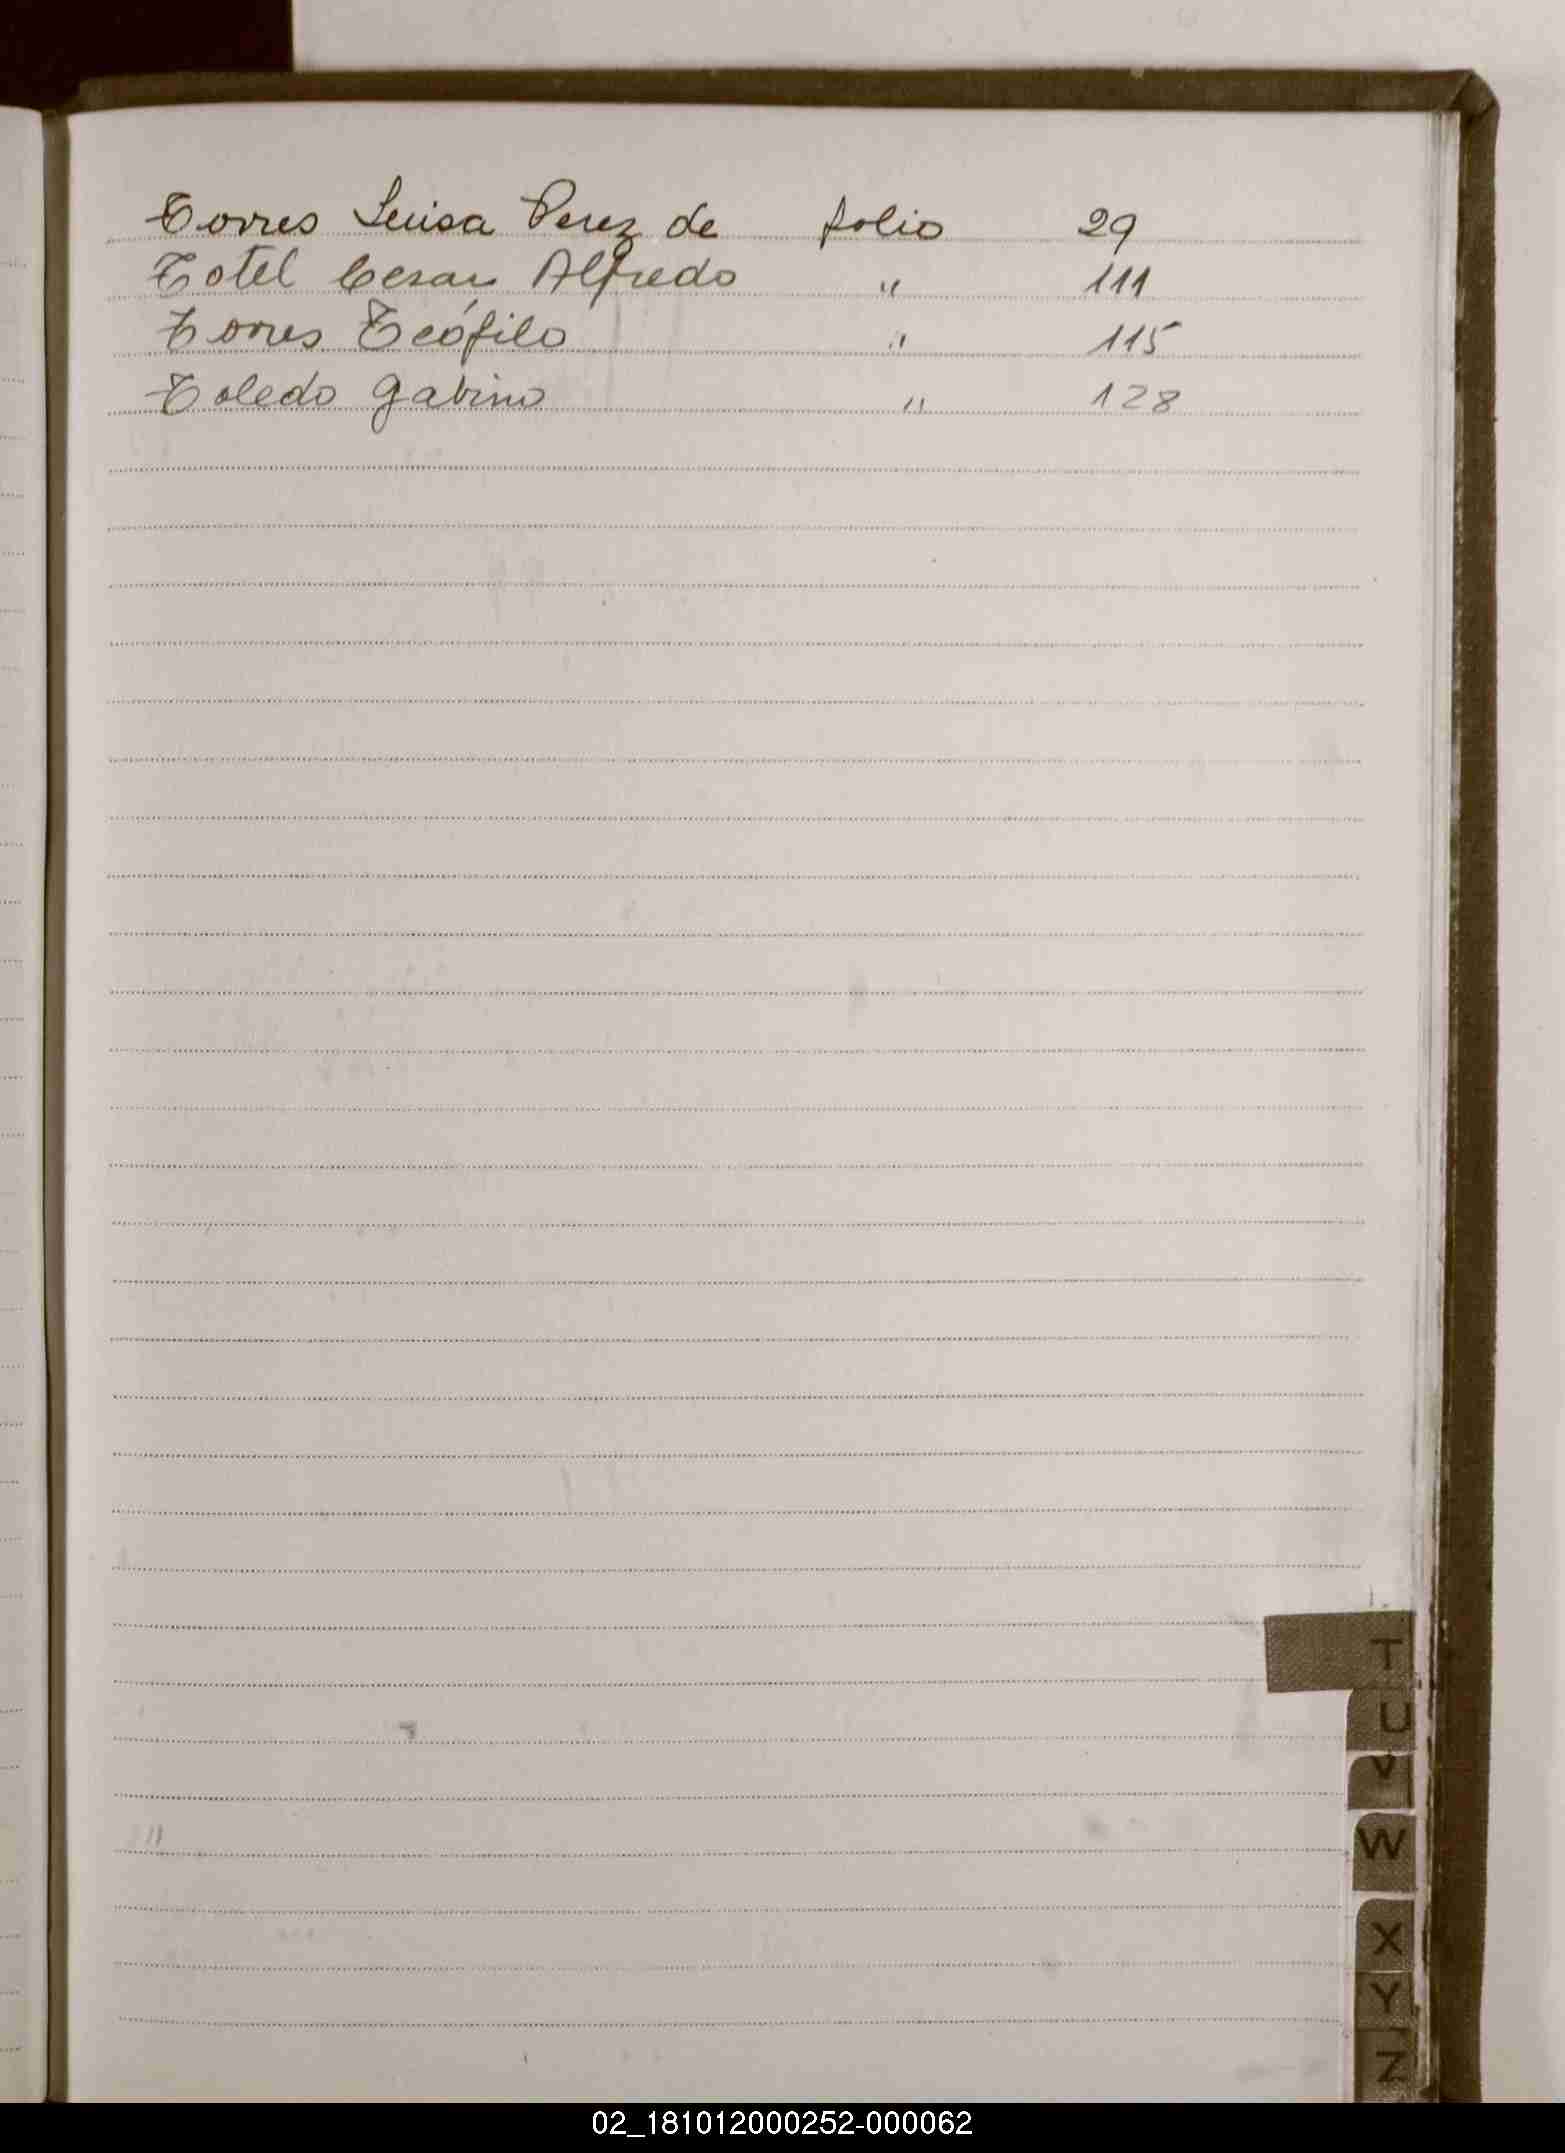 Torres Luisa Perez de folio 29
Totel Cesar Alfredo " 111
Torres Teófilo " 115
Toledo Gabino " 128
T
U
V
W
X
Y
Z
02_181012000252-000062